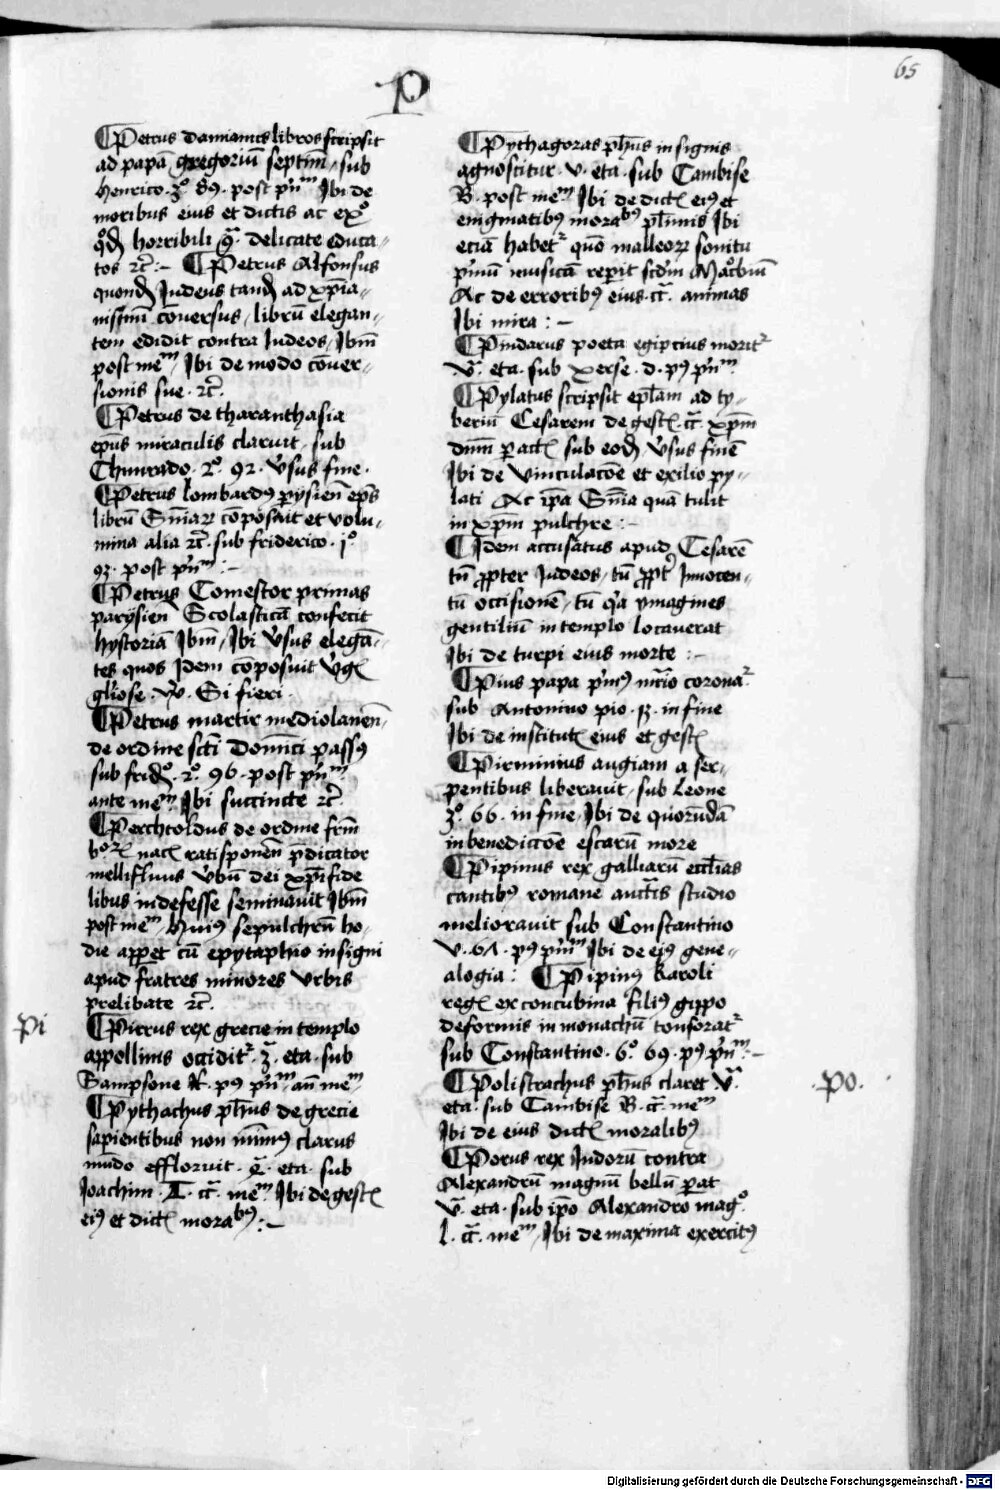 P
65
¶Petrus damianus libros scripsit
ad papā gregoriū septim̄, sub
henrico · 3º 89 · post pͥnᵐ Ibi de
moribus eius et dictis ac exº
qd̄ horribili delicate educa-
tos ⁊c̄ :– ¶Petrus Alfonsus
quond̄ Iudeus tand̄ ad xp̄ia-
nissimū cōuersus, librū elegan-
tem edidit contra Iudeos, Ibm̄
post meᵐ, Ibi de modo cōuer-
sionis sue · ⁊c̄ ·
¶Petrus de tharanthasia
ep̄us miraculis claruit · sub
Chunrado · 2º · 92 · v̓sus fine ·
¶Petrus lombardꝰ pysien̄ ep̄s
librū Sn̄iaꝝ cōposuit et volu-
mina alia ⁊c̄ · sub friderico · jº
93 · post pͥnᵐ :–
¶Petrus Comestor primas
parysien̄ Scolasticā confecit
hystoriā Ibm̄, Ibi v̓sus elegā-
tes quos Idem cōposuit v̓gͥ
gl̓iose · v̓ · Si fieri ·
¶Petrus martir mediolanen̄
de ordine scti Domīci passꝰ
sub fridº · 2º · 96 · post pͥnᵐ
ante meᵐ Ibi succincte ⁊c̄ ·
¶Perchtoldus de ordine frm̄
nacꝭ ratisponen̄ p̄dicator
mellifluus v̓bū dei xp̄i fide
libus indefesse seminauit Ibm̄
post meᵐ, Huiꝰ sepulchrū ho-
die appet cū epytaphio insigni
apud fratres minores vrbis
prelibate ⁊c̄ ·
pi
¶Pirrus rex grecie in templo
appollinis occidit᷑ · 3ᵃ · eta · sub
Sampsone R · pꝰ pͥnᵐ, an̄ meᵐ
¶Pythachus ph̄us de grecie
sapientibus non minimꝰ clarus
mūdo effloruit · eta · sub
Ioachim · A · cͬ · meᵐ Ibi de gestꝭ
eiꝰ et dictꝭ moraᵇꝰ :–
¶Pythagoras ph̄us insignis
agnoscitur · v · eta · sub Cambise
B · post meᵐ Ibi de dictꝭ eiꝰ et
enigmatibꝰ moraᵇꝰ pl̄imis Ibi
eciā habet᷑ quō malleoꝝ sonitu
pͥmū musicā repit scd̄m Macbiū
Ac de erroribꝰ eius · cͬ · animas
Ibi mira :–
¶Pindarus poeta egipcius morit᷑
vᵃ · eta · sub xerse · d · pꝰ pͥnᵐ
¶Pylatus scripsit ep̄lam ad ty-
beriū Cesarem de gestꝭ · cͬ · xp̄m
dnm̄ pactꝭ sub eod̄ v̓sus finē
Ibi de vinculacōe et exilio py-
lati Ac ip̄a Sn̄ia quā tulit
in xp̄m pulchre :–
¶Idem accusatus apud Cesarē
tū ꝓpter Iudeos, tū ꝓpt᷑ Innocen-
tū occisionē, tū qͥa ymagines
gentiliū in templo locauerat
Ibi de turpi eius morte :–
¶Pius papa pͥmꝰ mr̄io corona᷑
sub Antonino pio · in fine
Ibi de institutꝭ eius et gestꝭ
¶Pirminius augiam a ser-
pentibus liberauit, sub Leone
3º · 66 · in fine, Ibi de quorūdā
in benedictōe escarū more
¶Pipinus rex galliarū eccl̄ias
cantibꝰ romane auctͥs studio
meliorauit sub Constantino
v · 67 · pꝰ pͥnᵐ Ibi de eiꝰ gene-
alogia : ¶Pipinꝰ karoli
regꝭ ex concubina filiꝰ gippo
deformis in monachū tonsorat᷑
sub Constantino · 6º · 69 · pꝰ pͥnᵐ :–
·po·
¶Polistrachus ph̄us claret vᵃ
eta · sub Cambise B · cͬ · meᵐ
Ibi de eius dictꝭ moralibꝰ
¶Porus rex Indorū contra
Alexandrū magnū bellū pat
vᵃ · eta · sub ip̄o Alexandro magº
l · cͬ · meᵐ, Ibi de maxima exercitꝰ
Digitalisierung gefördert durch die Deutsche Forschungsgemeinschaft - DFG